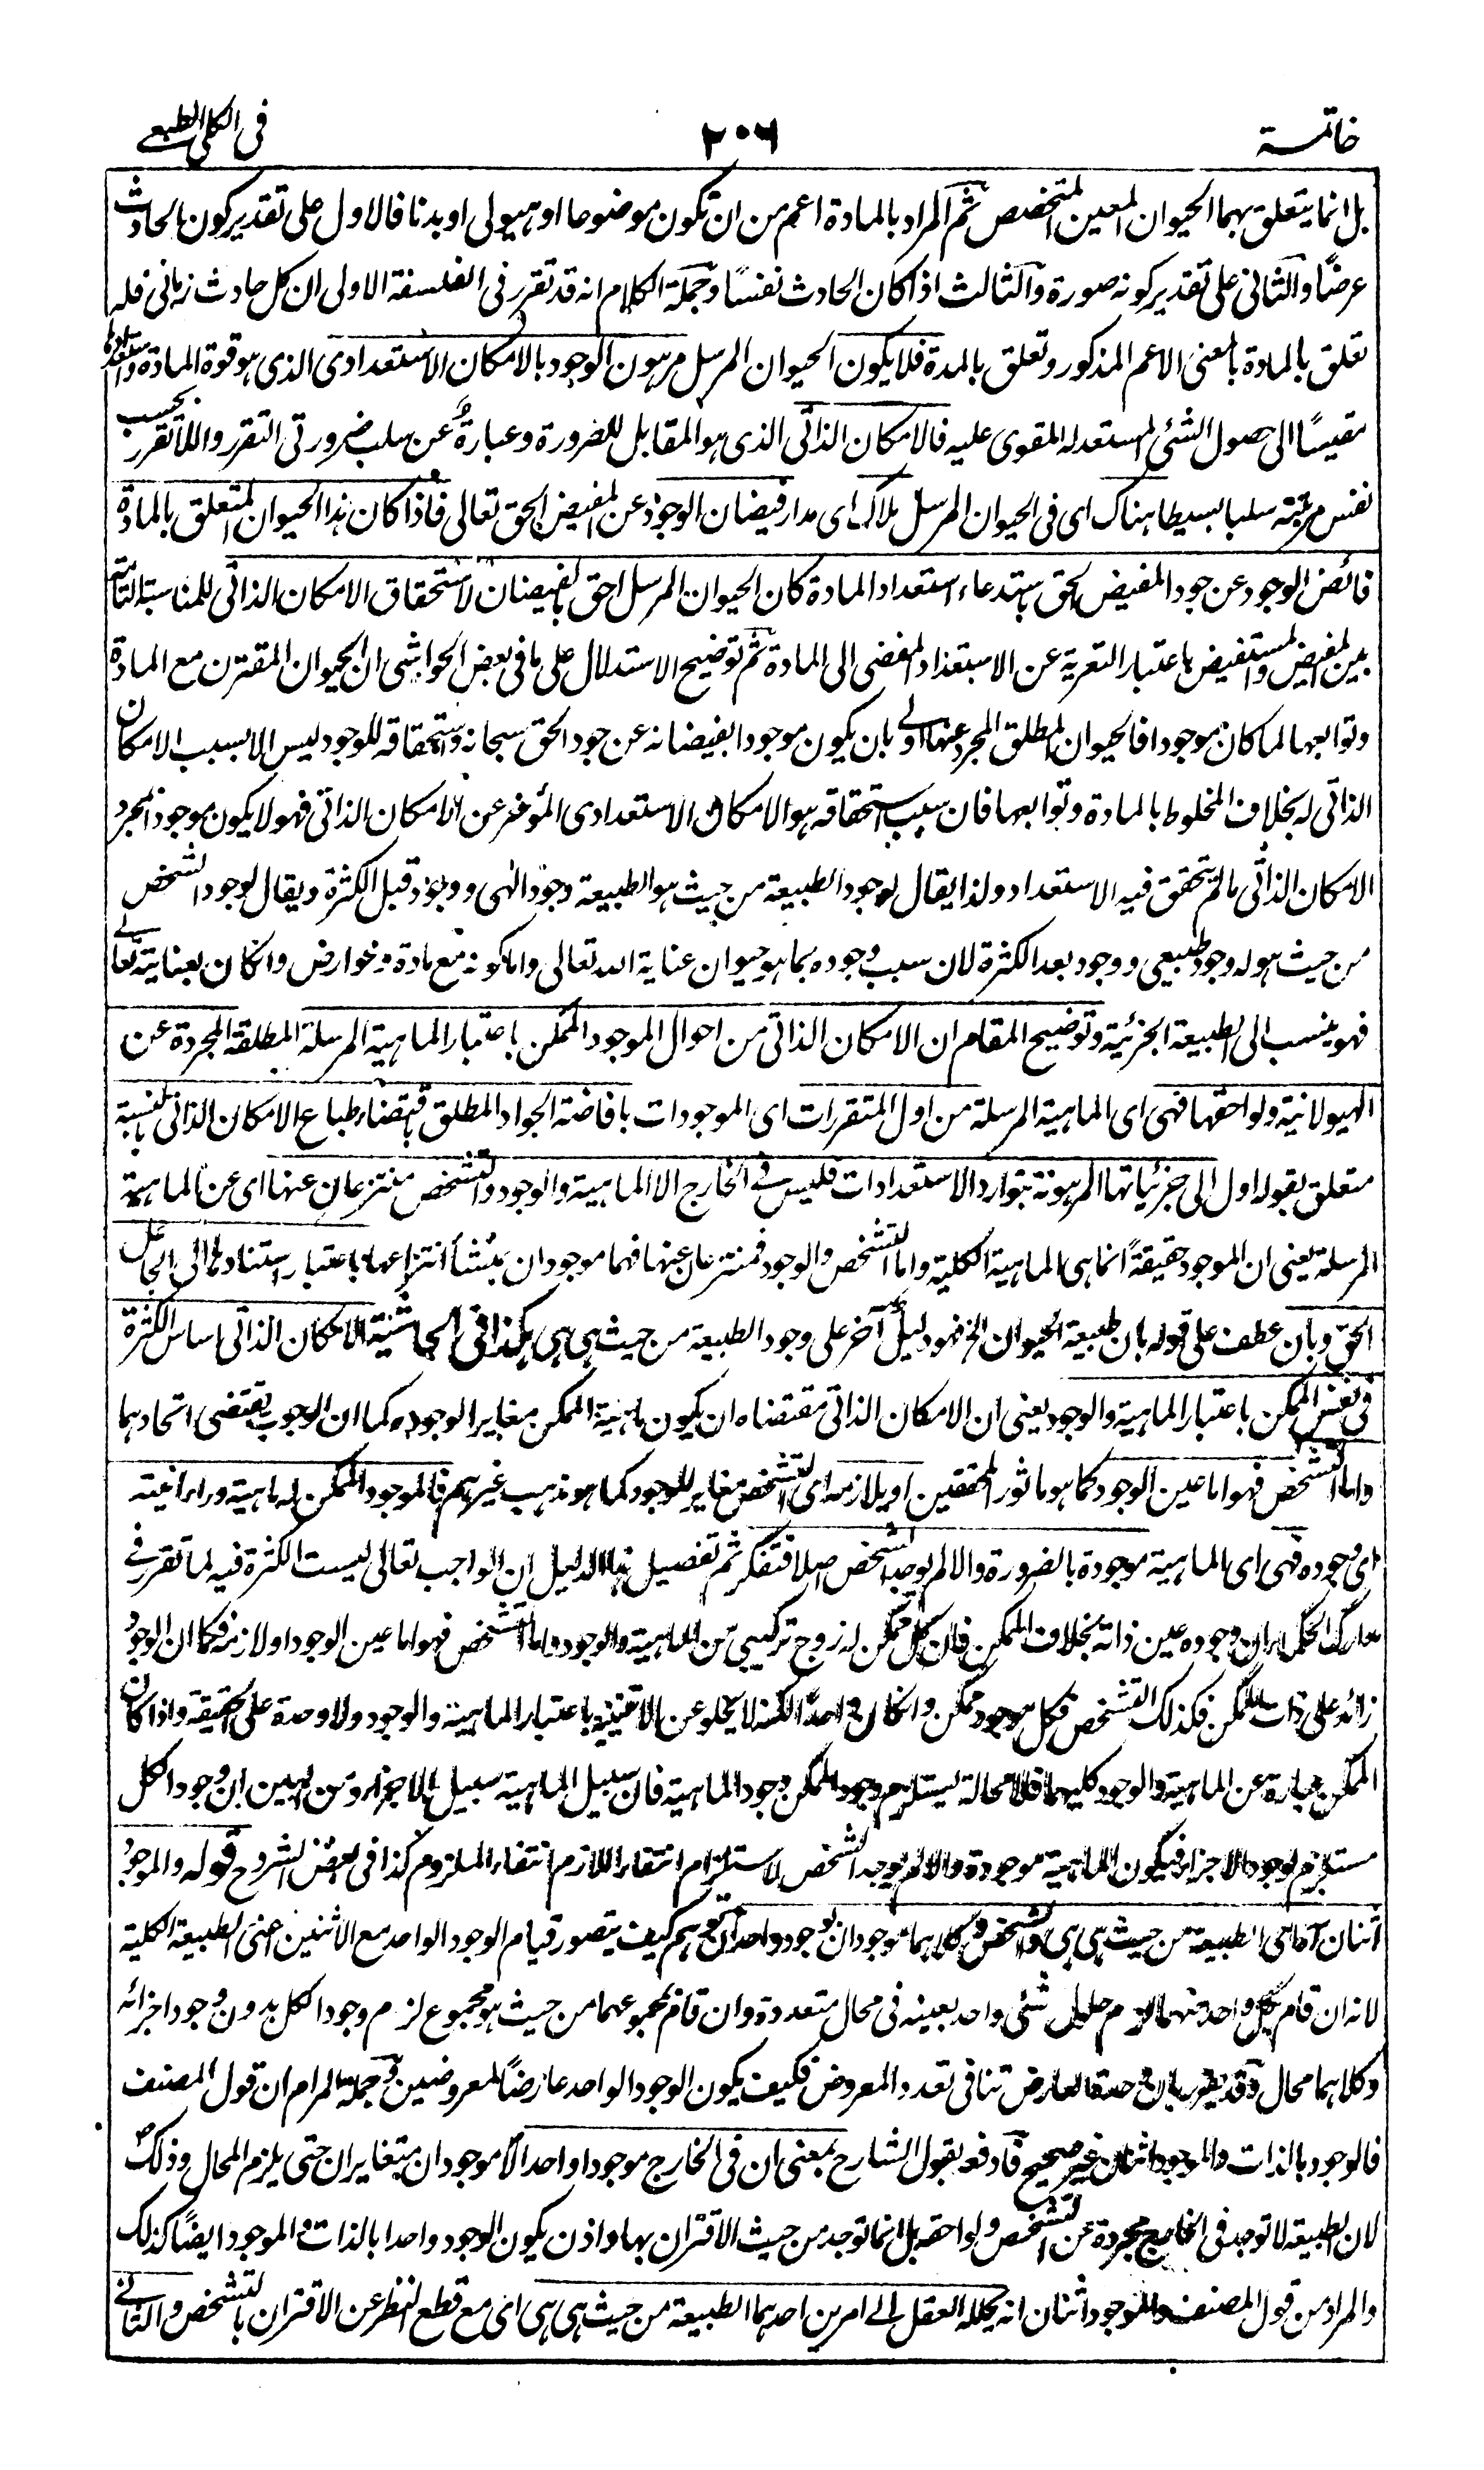 خاتمة
٢٠٦
فى الكلى الطبعے
بل انما يتعلق بهما الحيوان المعين المتخصص ثم المراد بالمادة اعم من ان تكون موضوعا او هيولى او بدنا فالاول على تقدير كون الحادث
عرضًا والثانى على تقدير كونه صورة والثالث اذا كان الحادث نفسًا وجملة الكلام انه قد تقرر فى الفلسفة الاولى ان كل حادث زمانى فله
تعلق بالمادة بالمعنى الاعم المذكور وتعلق بالمدة فلا يكون الحيوان المرسل مرهون الوجود بالامكان الاستعدادى الذى هو قوة المادة واستعدادها
مقيسًا الى حصول الشئ المستعد له المقوى عليه فالامكان الذاتى الذى هو المقابل للضرورة وعبارةٌ عن سلب ضرورتى التقرر واللاتقرر بحسب
نفس مرتبته سلبا بسيطا هناك اى فى الحيوان المرسل ملاك اى مدار فيضان الوجود عن المفيض الحق تعالى فاذا كان هذا الحيوان المتعلق بالمادة
فائض الوجود عن جود المفيض الحق باستدعاء استعداد المادة كان الحيوان المرسل احق بالفيضان لاستحقاق الامكان الذاتى للمناسبة التامة
بين المفيض والمستفيض باعتبار التعرية عن الاستعداد المفضى الى المادة ثم توضيح الاستدلال على ما فى بعض الحواشى ان الحيوان المقترن مع المادة
وتوابعها لما كان موجودا فالحيوان المطلق المجرد عنها اولے بان يكون موجودا بفيضانه عن جود الحق سبحانه واستحقاقه للوجود ليس الا بسبب الامكان
الذاتى له بخلاف المخلوط بالمادة وتوابعها فان سبب استحقاقه هو الامكان الاستعدادى المؤخر عن الامكان الذاتى فهو لا يكون موجودا بمجرد
الامكان الذاتى ما لم يتحقق فيه الاستعداد ولذا يقال لوجود الطبيعة من حيث هو الطبيعة وجود الهى ووجود قبل الكثرة ويقال لوجود الشخص
من حيث هو له وجود طبيعى ووجود بعد الكثرة لان سبب وجوده بما هو حيوان عناية الله تعالى واما كونه مع مادة وعوارض وان كان بعناية تعالے
فهو ينسب الى الطبيعة الجزئية وتوضيح المقام ان الامكان الذاتى من احوال الموجود الممكن باعتبار الماهية المرسلة المطلقة المجردة عن
الهيولانية ولواحقها فهى اى الماهية المرسلة من اول المتقررات اى الموجودات بافاضة الجواد المطلق باقتضاء طباع الامكان الذاتى بالنسبة
متعلق بقوله اول الى جزئياتها المرهونة بتوارد الاستعدادات فليس فى الخارج الا الماهية والوجود والتشخص منتزعان عنها اى عن الماهية
المرسلة يعنى ان الموجود حقيقةً انما هى الماهية الكلية واما التشخص والوجود فمنتزعان عنها فهما موجودان بمنشأ انتزاعهما باعتبار استنادها الى الجاعل
الحق وبان عطف على قوله بان طبيعة الحيوان الخ فهو دليل آخر على وجود الطبيعة من حيث هى هى هكذا فى الحاشية الامكان الذاتى اساس الكثرة
فى نفس الممكن باعتبار الماهية والوجود يعنى ان الامكان الذاتى مقتضاه ان يكون ماهية الممكن مغاير الوجوده كما ان الوجوب يقتضى اتحادهما
واما التشخص فهو اما عين الوجود كما هو ماثور المحققين او يلازمه اى التشخص مغاير للوجود كما هو مذهب غيرهم فالموجود الممكن له ماهية وراء انيته
اى وجوده فهى اى الماهية موجودة بالضرورة والا لم يوجد الشخص اصلا فتفكر ثم تفصيل هذا الدليل ان الواجب تعالى ليست الكثرة فيه لما تقرر فے
مدارك الحكماء ان وجوده عين ذاته بخلاف الممكن فان كل ممكن له زوج تركيبى من الماهية والوجود واما التشخص فهو اما عين الوجود او لازمه فكما ان الوجود
زائد على ذات الممكن فكذلك التشخص فكل موجود ممكن وان كان واحدًا لكنه لا يخلو عن الاثنينية باعتبار الماهية والوجود ولا وحدة على الحقيقة واذا كان
الممكن عبارة عن الماهية والوجود كليهما فلا محالة يستلزم وجود الممكن وجود الماهية فان سبيل الماهية سبيل الاجزاء ومن البين ان وجود الكل
مستلزم لوجود الاجزاء فيكون الماهية موجودة والا لم يوجد الشخص لاستلزام انتفاء اللازم انتفاء الملزوم كذا فى بعض الشروح قوله والموجود
اثنان آه اى الطبيعة من حيث هى هى والشخص وكلاهما موجودان بوجود واحد ان توهم كيف يتصور قيام الوجود الواحد مع الاثنين اعنى الطبيعة الكلية
لانه ان قام بكل واحد منهما لزم حلول شئى واحد بعينه فى محال متعددة وان قام بمجموعهما من حيث هو مجموع لزم وجود الكل بدون وجود اجزائه
وكلاهما محال وقد يقرر بان وحدة العارض تنافى تعدد المعروض فكيف يكون الوجود الواحد عارضًا لمعروضين وجملة المرام ان قول المصنف
فالوجود بالذات والموجود اثنان غير صحيح فادفعه بقول الشارح بمعنى ان فى الخارج موجودا واحدا لا موجودان متغايران حتى يلزم المحال وذلك
لان الطبيعة لا توجد فى الخارج مجردة عن التشخص ولواحقه بل انما توجد من حيث الاقتران بها واذن يكون الوجود واحدا بالذات فے الموجود ايضًا كذلك
والمراد من قول المصنف والموجود اثنان انه يحلله العقل الے امرين احدهما الطبيعة من حيث هى هى اى مع قطع النظر عن الاقتران بالتشخص والثانے